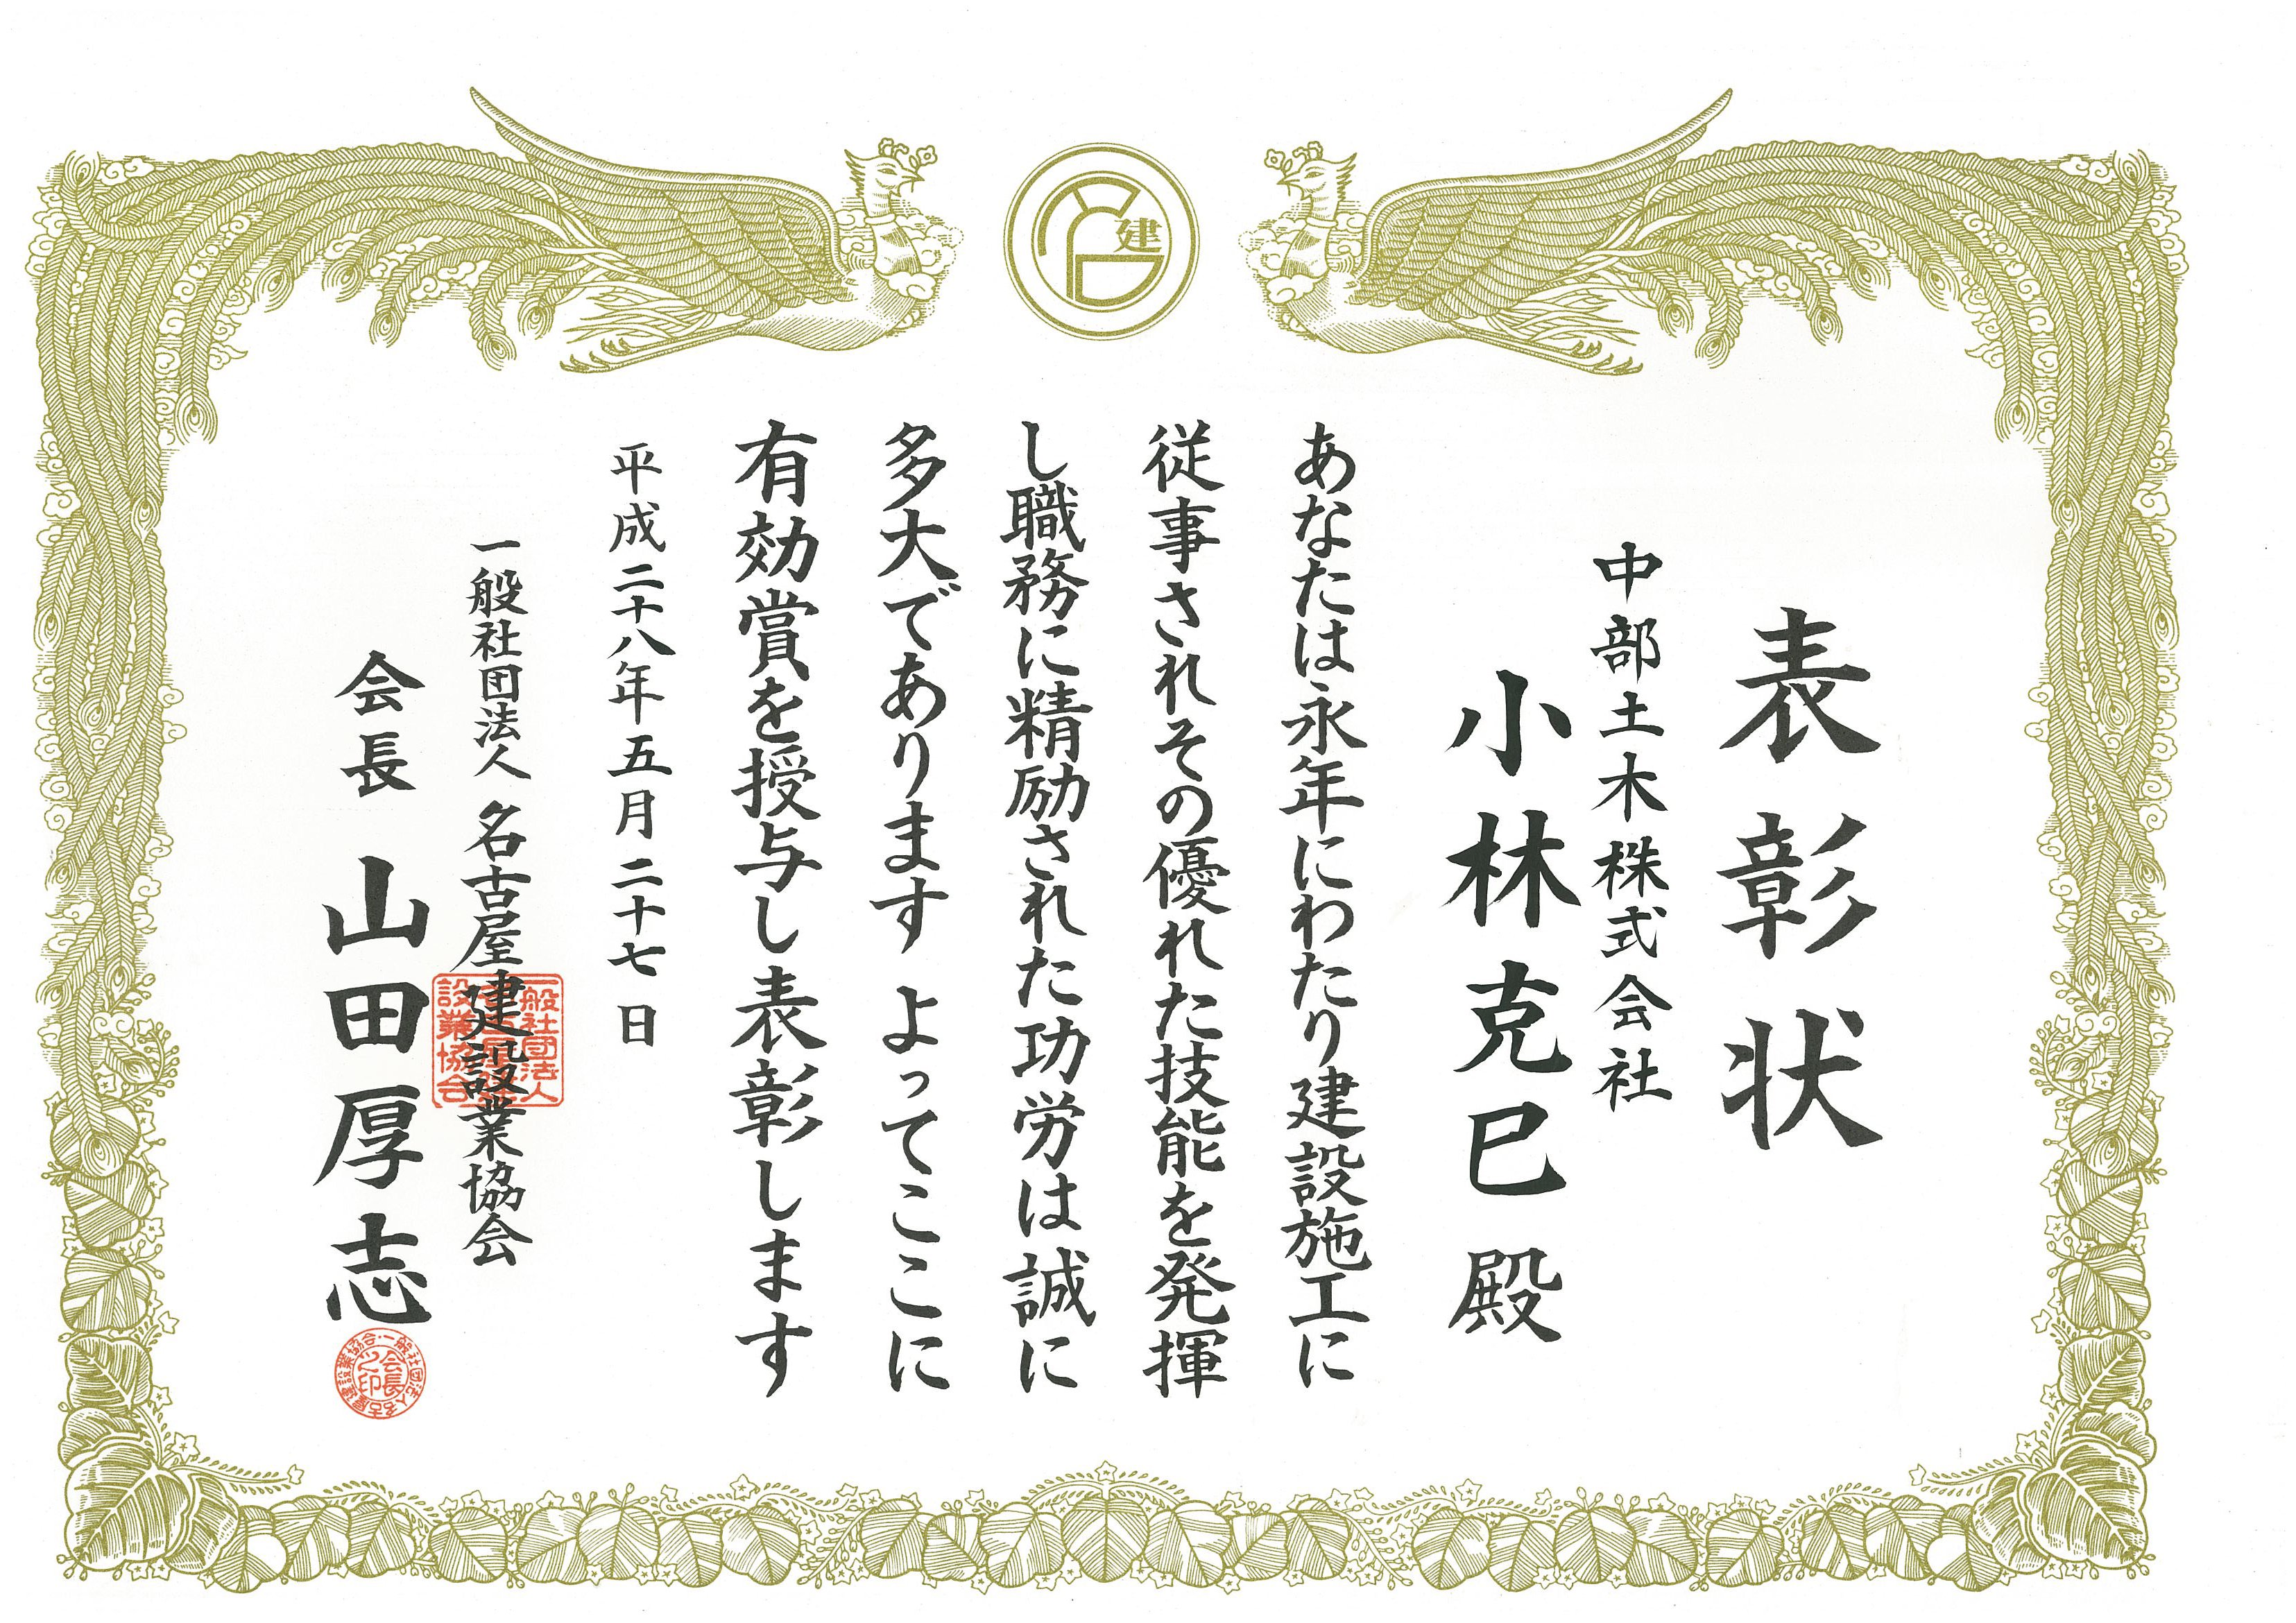 建
表彰状
中部土木株式会社
小林克巳殿
あなたは永年にわたり建設施工に
従事されその優れた技能を発揮
し職務に精励された功労は誠に
多大であります よってここに
有効賞を授与し表彰します
平成二十八年五月二十七日
一般社団法人 名古屋建設業協会
会長 山田厚志
一般社団法人名古屋建設業協会
一般社団法人名古屋建設業協会
会長之印